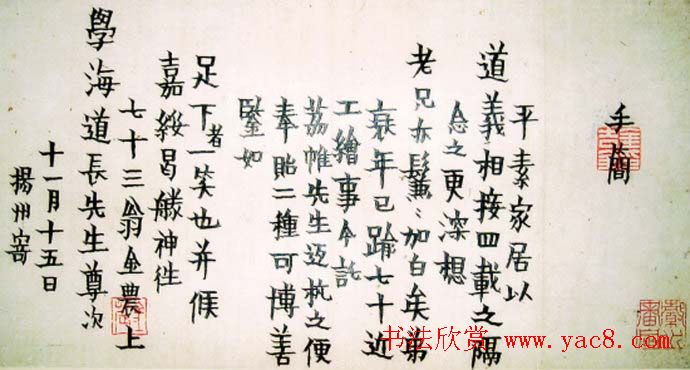 手簡
平素家居以
道義相接四載之隔
念之更深想
老兄亦鬑〻加白矣弟
衰年已踰七十近
工繪事今託
荔帷先生返杭之便
奉貽二種可博善
鑒如
足下者一笑也并候
嘉綏曷勝神往
七十三翁金農上
學海道長先生尊次
十一月十五日
揚州寄
书法欣赏 www.yac8.com